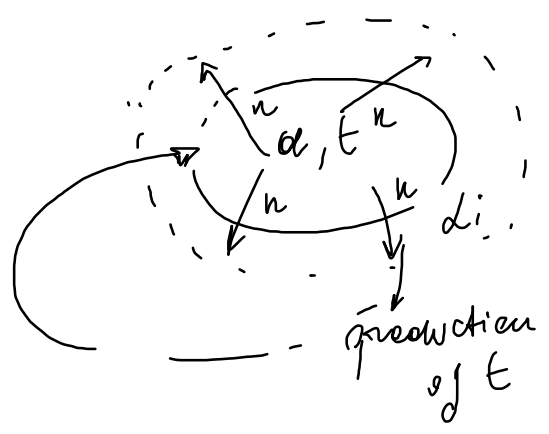 n
d, t n
n n
Li
production
of t